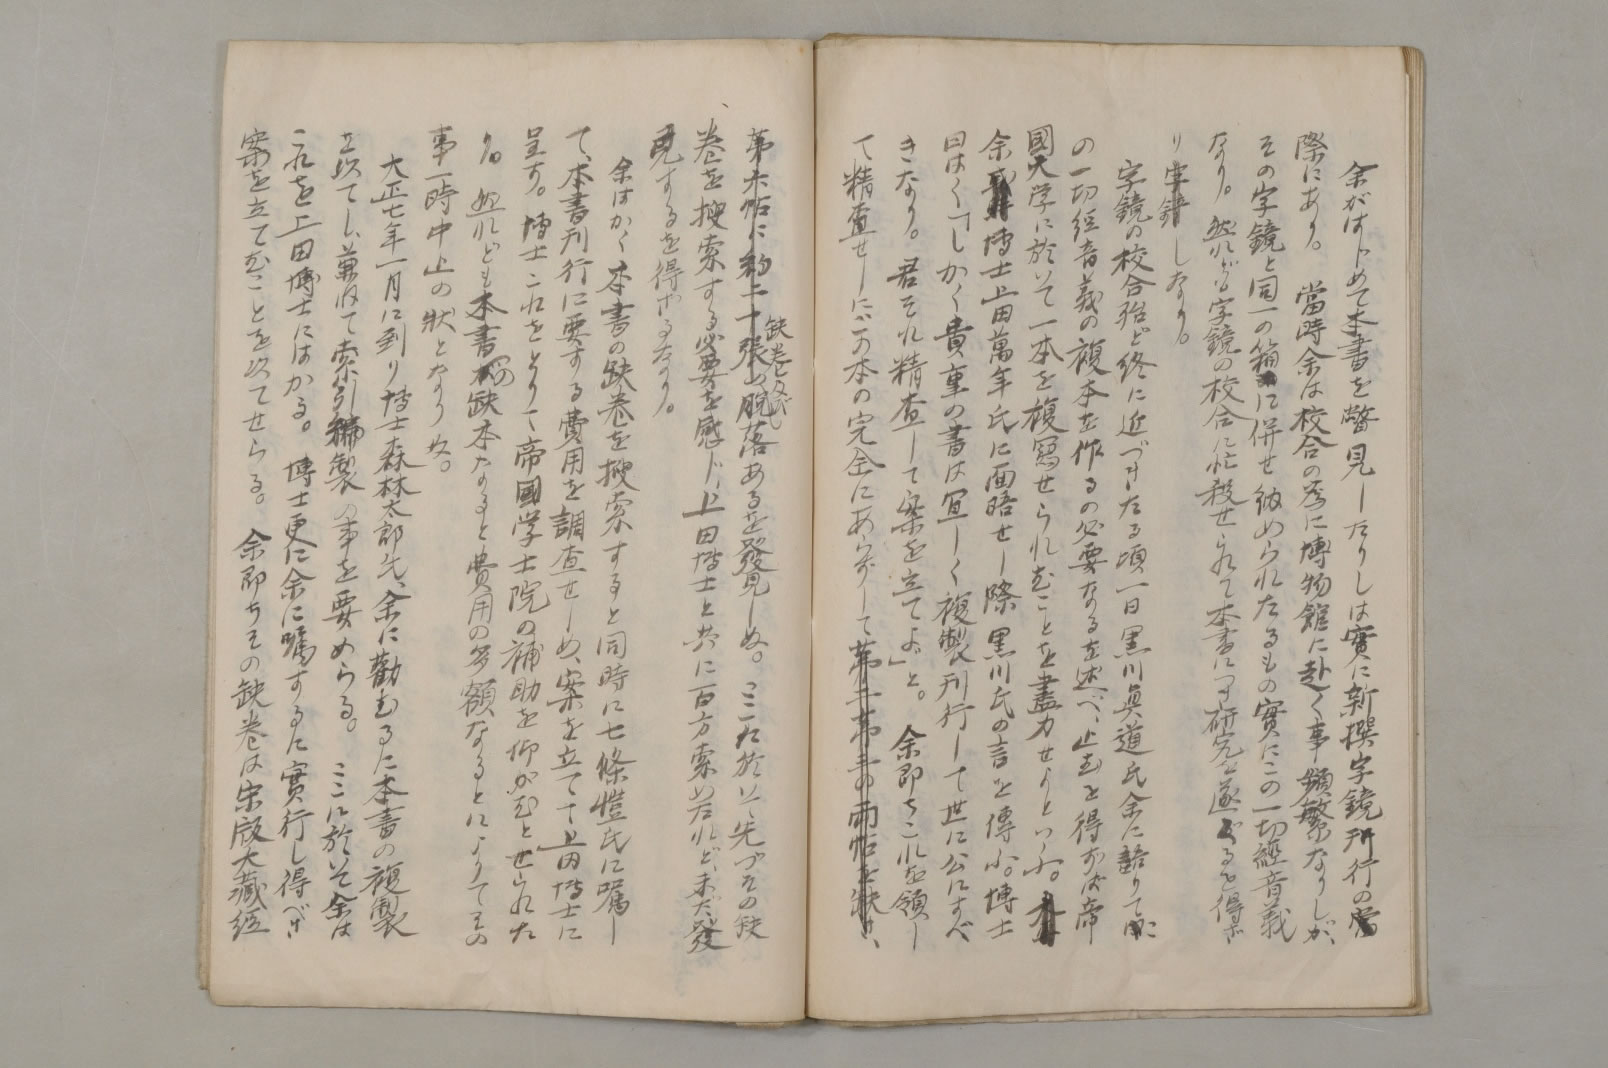 余がはじめて本書を瞥見したりしは實に新撰字鏡所行の
際にあり。當時余は校合の爲に博物館に赴く事頻繁なりしが、
その字鏡と同一の箱に併せ納められたるもの實にこの一切經音義
なり。然れども字鏡の校合に忙殺せられて本書につき研究を遂ぐるを得ざ
りしなり。
字鏡の校合殆ど終に近づきたる頃一日黒川眞道氏余に語りて
の一切経音義の複本を作るの必要なるを述べ、止むを得ずば帝
國大学に於いて一本を複寫せられむことを盡力せよといふ。
余博士上田萬年氏に面晤せし際黒川氏の言を傳ふ。博士
曰はく「しかく貴重の書は宜しく複製刊行して世に公にすべ
きなり。君それ精査して案を立てよ」と。余即ちこれを領し
て精査せしに、この本の完全にあらずして第二第三の両帖を缺き、
第六帖に約二十張の脱落あるを發見しぬ。ここに於いて先づその缺
缺巻及
巻を搜索する必要を感じ、上田博士と共に百方索め若れど、未だ發
見するを得ざるなり。
余はかく本書の缺巻を搜索すると同時に七條愷氏に嘱し
て、本書刊行に要する費用を調査せしめ、案を立てて上田博士に
呈す。博士これをとりて帝國学士院の補助を仰がむとせられた
り。然れども本書の缺本なると費用の多額なるとによりてその
事一時中止の状となりぬ。
大正七年一月に到り博士森林太郎氏、余に勸むるに本書の複製
を以てし、兼ねて索引編製の事を要めらる。ここに於いて余は
これを上田博士にはかる。博士更に余に嘱するに實行し得べき
案を立てむことを以てせらる。余即ちその缺巻は宋版大藏経